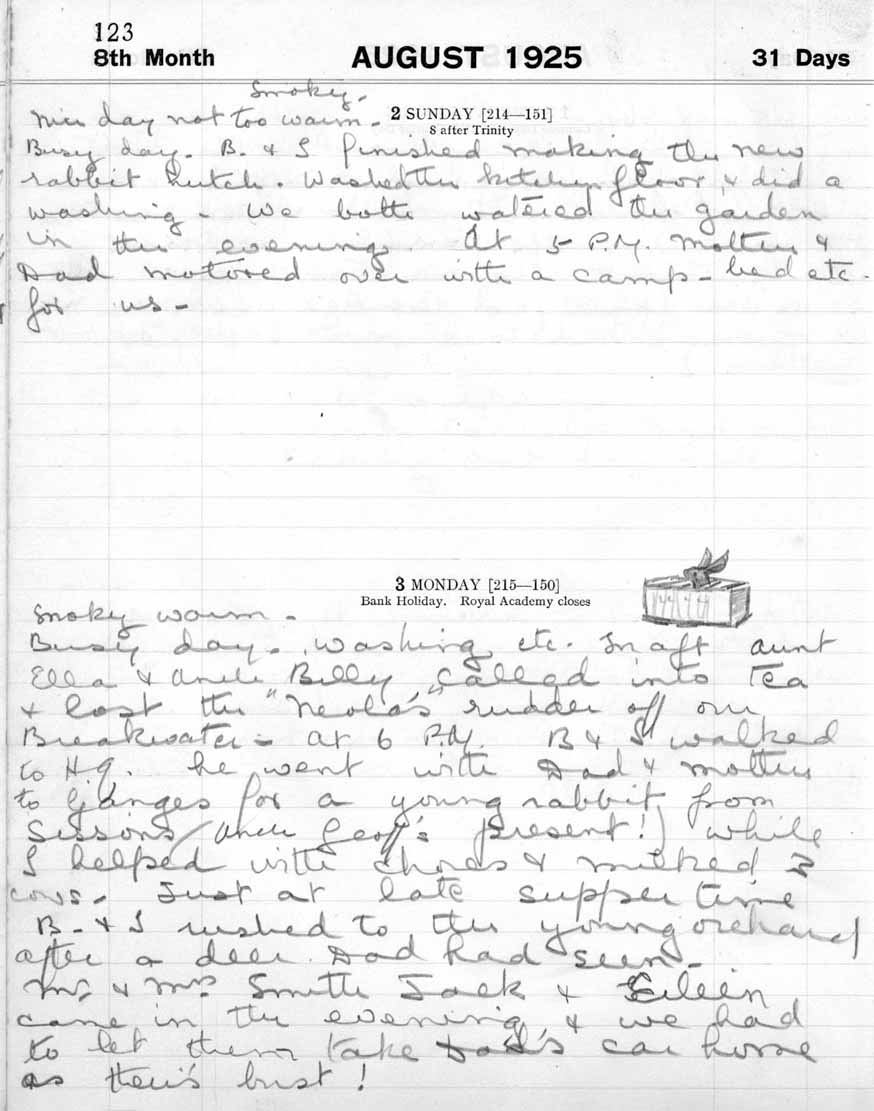 123
8th Month AUGUST 1925 31 Days
Smoky.
Nice day not too warm.
2 SUNDAY [214—151]
8 after Trinity
Busy day. B. & I finished making the new
rabbit hutch. Washed the kitchen floor, & did a
washing. We both watered the garden
in the evening. At 5 P.M. Mother &
Dad motored over with a camp-bed etc.
for us -
3 MONDAY [215—150]
Bank Holiday. Royal Academy closes
Smoky warm.
Busy day. Washing etc. In aft aunt
Ella & Uncle Billy called into Tea
& lost the "Neola's" rudder off our
Breakwater - At 6 P.M. B & I walked
to H.Q. he went with Dad & Mother
to Ganges for a young rabbit from
Sissons (Uncle Geoff's present!) while
I helped with chores & milked 2
cows. Just at late supper time
B. & I rushed to the young orchard
after a deer Dad had seen -
Mr & Mrs Smith Jack & Eileen
came in the evening, & we had
to let them take Dad's car home
as their's bust!